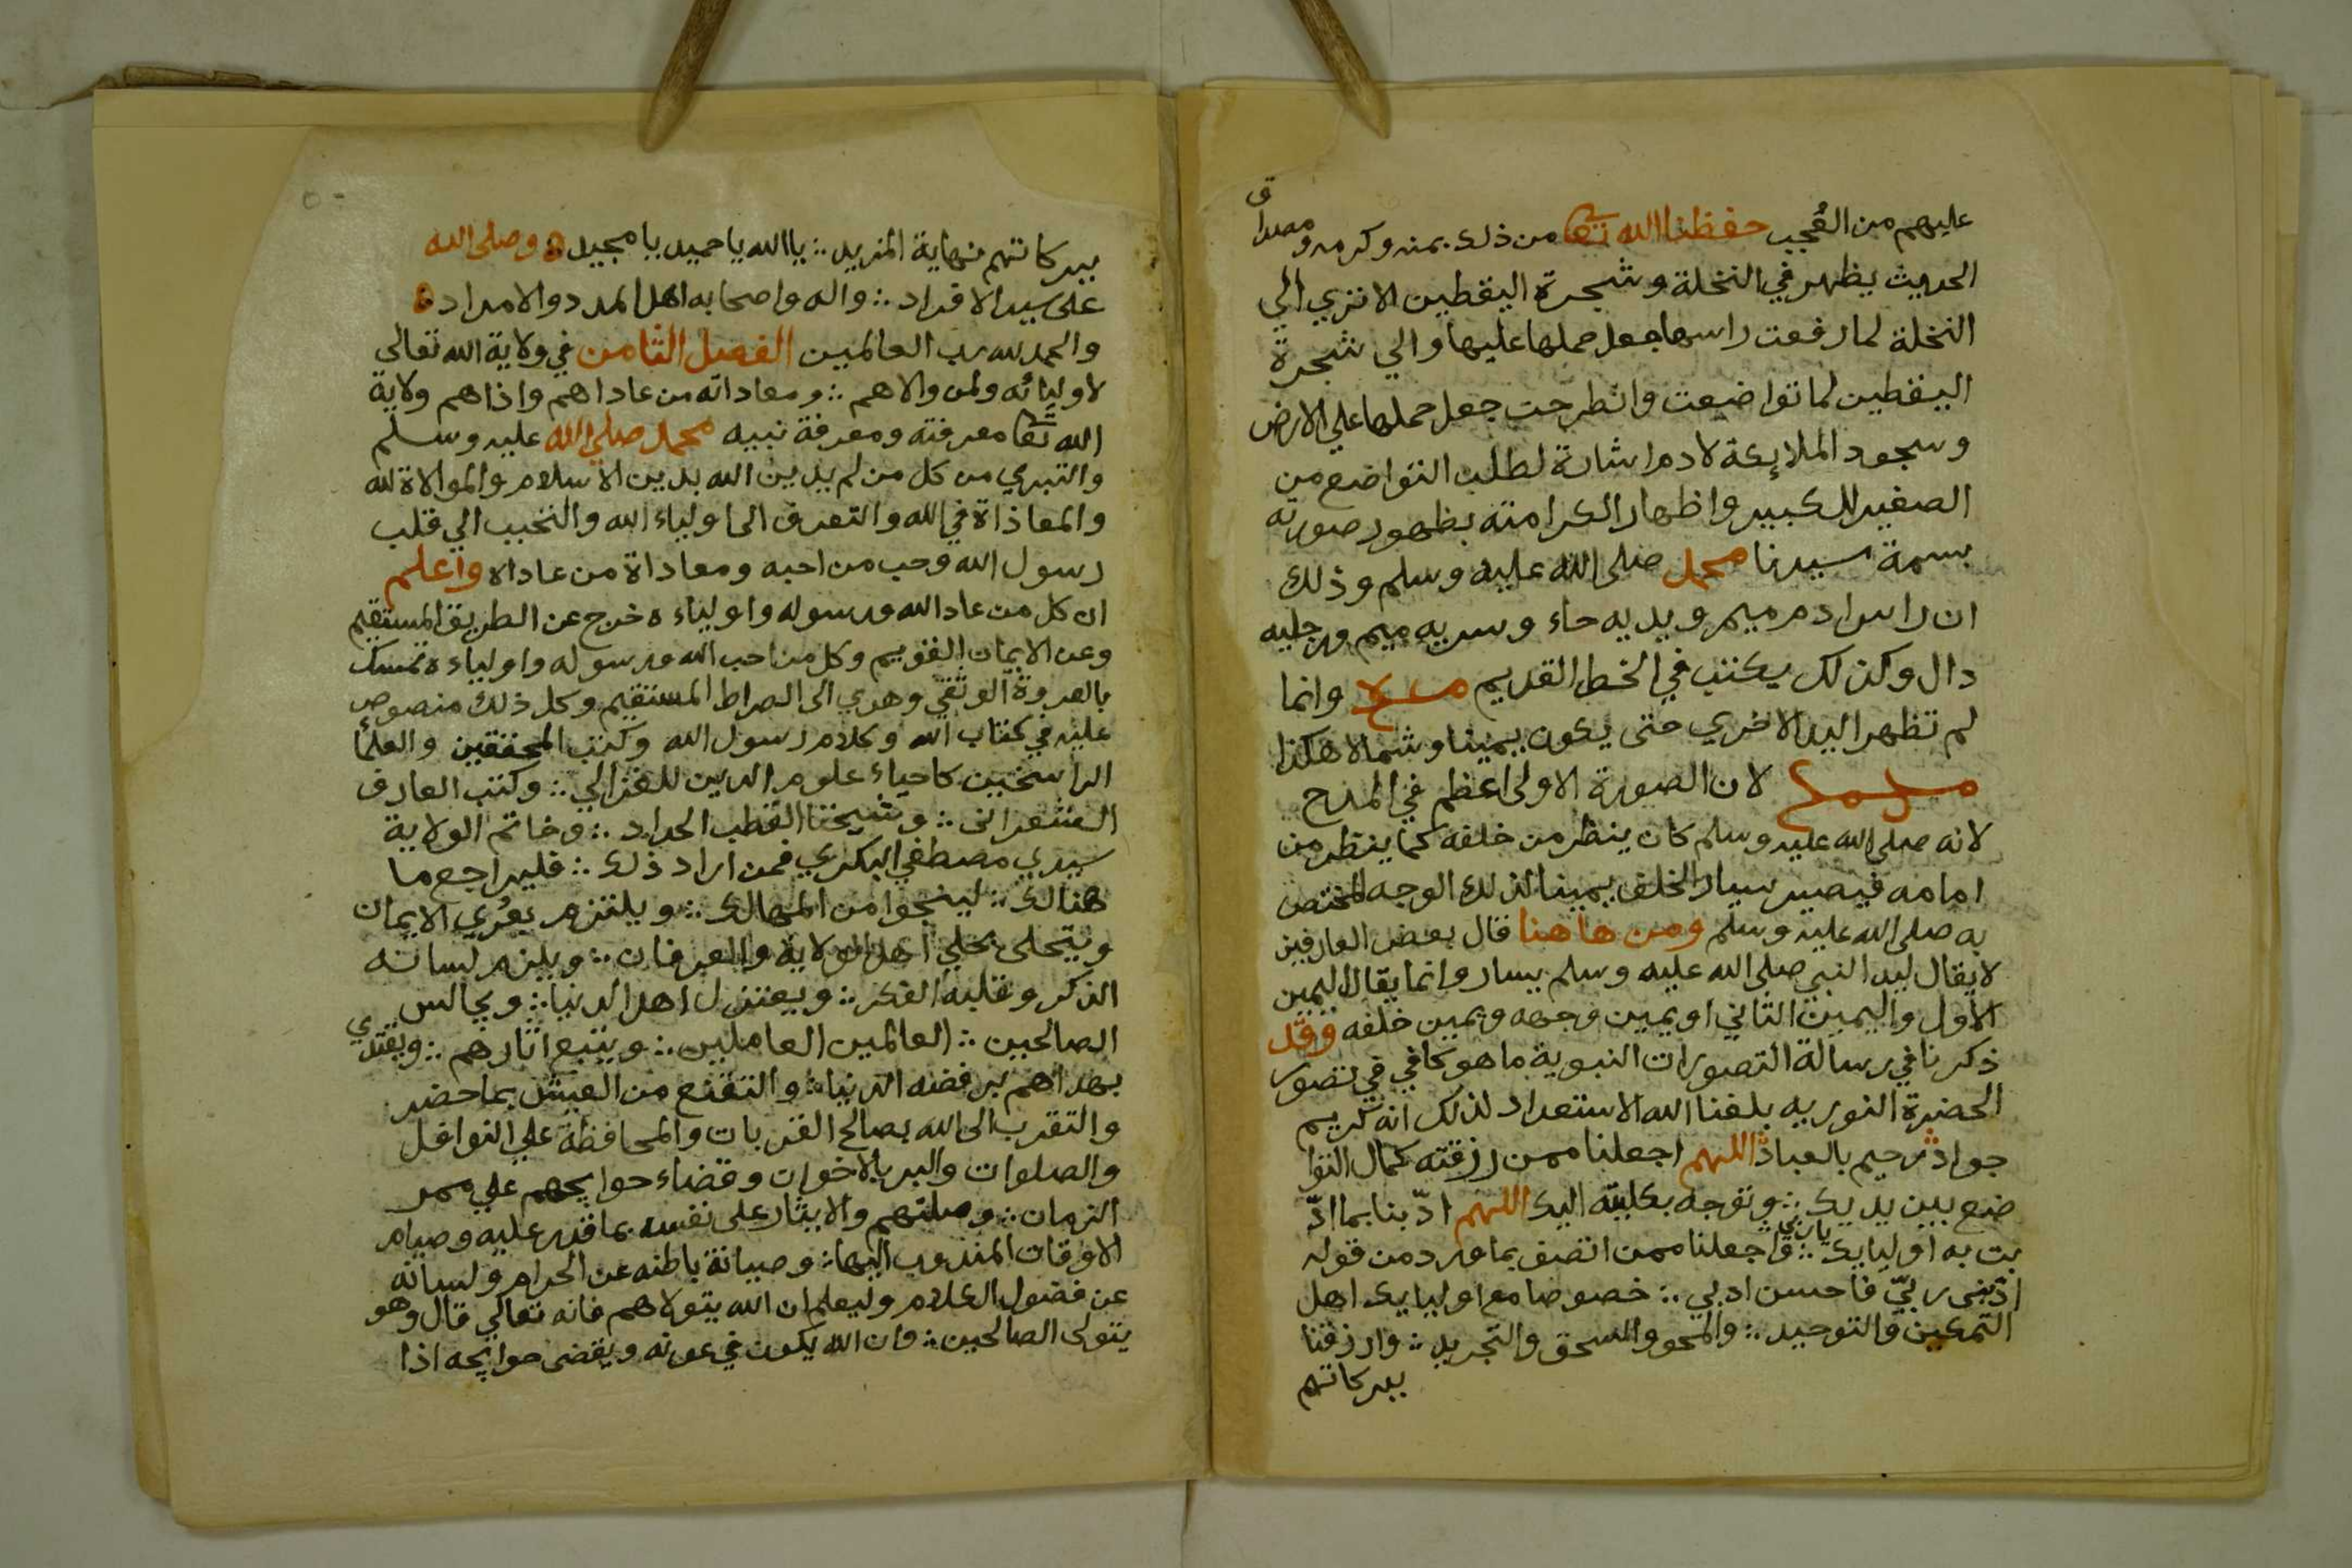 عليهم من العُجب حفظنا الله تعا من ذلك بمنه وكرمه ومصداق
الحديث يظهر في النخلة وشجرة اليقطين الا تري الي
النخلة لما رفعت راسها جعل حملها عليها والي شجرة
اليقطين لما تواضعت وانطرحت جعل حملها علي الارض
وسجود الملايكة لادم اشارة لطلب التواضع من
الصغير للكبير واظهار الكرامته بظهور صورته
بسمة سيدنا محمد صلى الله عليه وسلم وذلك
ان راس ادم ميم ويديه حاء وسريه ميم ورجليه
دال وكذلك يكتب في الخط القديم وانما
لم تظهر اليد الاخري حتى يكون يمينا وشمالا هكذا
لان الصورة الاولى اعظم في المدح
لانه صلى الله عليه وسلم كان ينظر من خلفه كما ينظر من
امامه فيصير سيار الخلف يمينا لذلك الوجه المختص
به صلى الله عليه وسلم ومن هاهنا قال بعض العارفين
لا يقال ليد النبي صلى الله عليه وسلم يسار وانما يقال اليمين
الاول واليمين الثاني او يمين وجهه ويمين خلفه وقد
ذكرنا في رسالة التصورات النبوية ما هو كافي في تصور
الحضرة النوريه بلغنا الله الاستعداد لذلك انه كريم
جواد رحيم بالعباد اللهم اجعلنا ممن رزقته كمال التوا
ضع بين يديك ∴ وتوجه بكليته اليك اللهم ادّبنا بما ادّ
بت به اوليايك يا ربي ∴ واجعلنا ممن اتصف بما ورد من قوله
ادّبني ربيّ فاحسن ادبي ∴ خصوصا مع اوليايك اهل
التمكين والتوحيد ∴ والمحو والسحق والتجريد ∴ وارزقنا
ببركاتهم
ببركاتهم نهاية المزيد ∴ يا الله يا حميد يا مجيد وصلى الله
على سيد الافراد ∴ واله واصحابه اهل المدد والامداد
والحمد لله رب العالمين الفصل الثامن في ولاية الله تعالى
لاوليائه ولمن والاهم ∴ ومعاداته من عاداهم واذاهم ولاية
الله تعا معرفته ومعرفة نبيه محمد صلي الله عليه وسلم
والتبري من كل من لم يدين الله بدين الاسلام والموالاة لله
والمعاذاة في الله والتعرف الى اولياء الله والتحبب الي قلب
رسول الله وحب من احبه ومعاداة من عاداه واعلم
ان كل من عاد الله ورسوله واولياءه خرج عن الطريق المستقيم
وعن الايمان القويم وكل من احب الله ورسوله واولياءه تمسك
بالعروة الوثقي وهدي الى الصراط المستقيم وكل ذلك منصوص
عليه في كتاب الله وكلام رسول الله وكتب المحققين والعلمأ
الراسخين كاحياء علوم الدين للغزالي ∴ وكتب العارف
الشعراني ∴ وشيخنا القطب الحداد ∴ وخاتم الولاية
سيدي مصطفي البكري فمن اراد ذلك ∴ فليراجع ما
هنالك ∴ لينجوا من المهالك ∴ ويلتزم بعُري الايمان
ويتحلى بحلي اهل الولاية والعرفان ∴ ويلزم لسانه
الذكر وقلبه الفكر ∴ ويعتزل اهل الدنيا ∴ ويجالس
الصالحين ∴ العالمين العاملين ∴ ويتبع اثارهم ∴ ويقتدي
بهداهم برفضه الدنيا ∴ والتقنع من العيش بما حضر
والتقرب الى الله بصالح القربات والمحافظة علي النوافل
والصلوات والبر بالاخوان وقضاء حوايجهم علي ممر
الزمان ∴ وصلتهم والايثار على نفسه بما قدر عليه وصيام
الاوقات المندوب اليها ∴ وصيانة باطنه عن الحرام ولسانه
عن فضول الكلام وليعلم ان الله يتولاهم فانه تعالي قال وهو
يتولى الصالحين ∴ وان الله يكون في عونه ويقضى حوايجه اذا